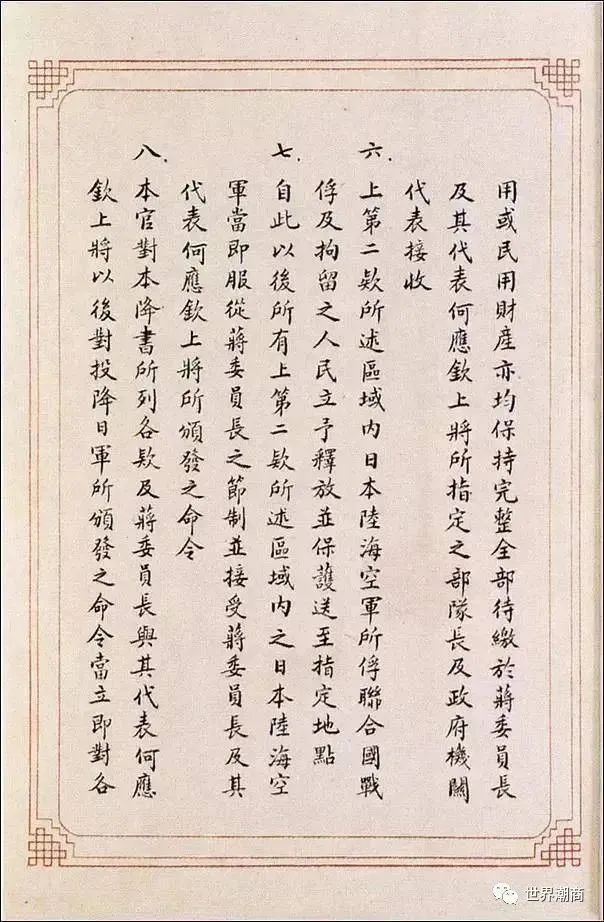 用或民用財產亦均保持完整全部待繳於蔣委員長
及其代表何應欽上將所指定之部隊長及政府機關
代表接收
六.上第二欵所述區域內日本陸海空軍所俘聯合國戰
俘及拘留之人民立予釋放並保護送至指定地點
七.自此以後所有上第二欵所述區域內之日本陸海空
軍當即服從蔣委員長之節制並接受蔣委員長及其
代表何應欽上將所頒發之命令
八.本官對本降書所列各欵及蔣委員長與其代表何應
欽上將以後對投降日軍所頒發之命令當立即對各
世界潮商